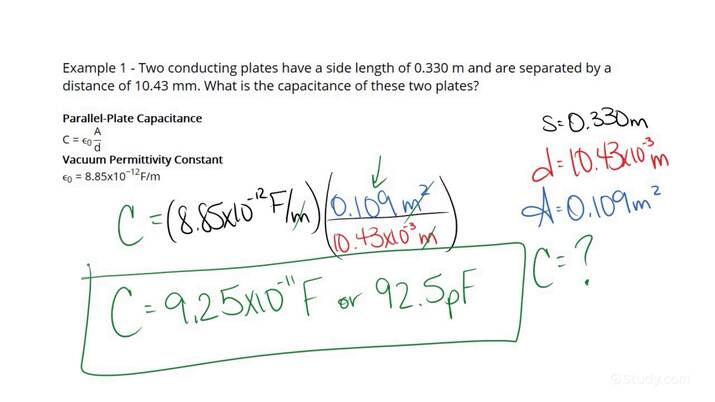 Example 1 - Two conducting plates have a side length of 0.330 m and are separated by a
distance of 10.43 mm. What is the capacitance of these two plates?
Parallel-Plate Capacitance
C = ϵ₀ A/d
Vacuum Permittivity Constant
ϵ₀ = 8.85x10⁻¹²F/m
s=0.330m
d=10.43x10⁻³m
A=0.109m²
C=?
C=(8.85x10⁻¹²F/m)(0.109m²/10.43x10⁻³m)
C=9.25x10⁻¹¹F or 92.5pF
©Study.com